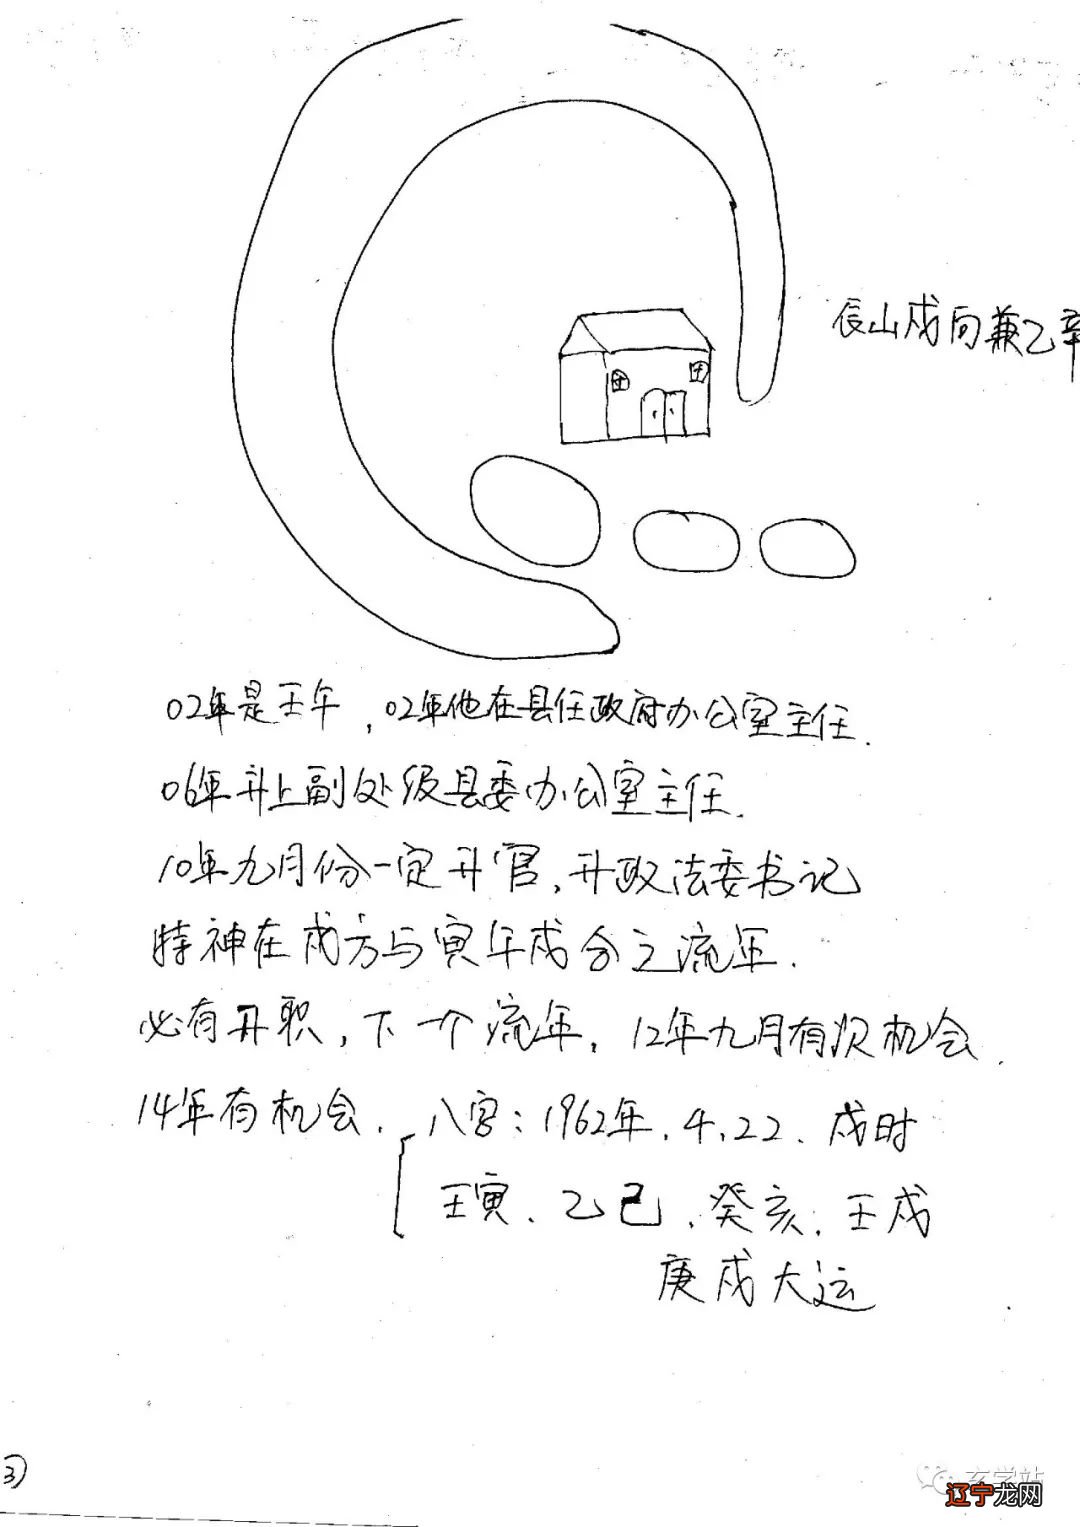 辰山戌向兼乙辛
02年是壬午,02年他在县任政府办公室主任.
06年升上副处级县委办公室主任.
10年九月份一定升官,升政法委书记
特神在戌方与寅午戌合之流年.
必有升职,下一个流年,12年九月有次机会.
14年有机会. 八字:1962年.4.22.戌时
壬寅.乙巳.癸亥.壬戌
庚戌大运
3
玄学站
辽宁龙网